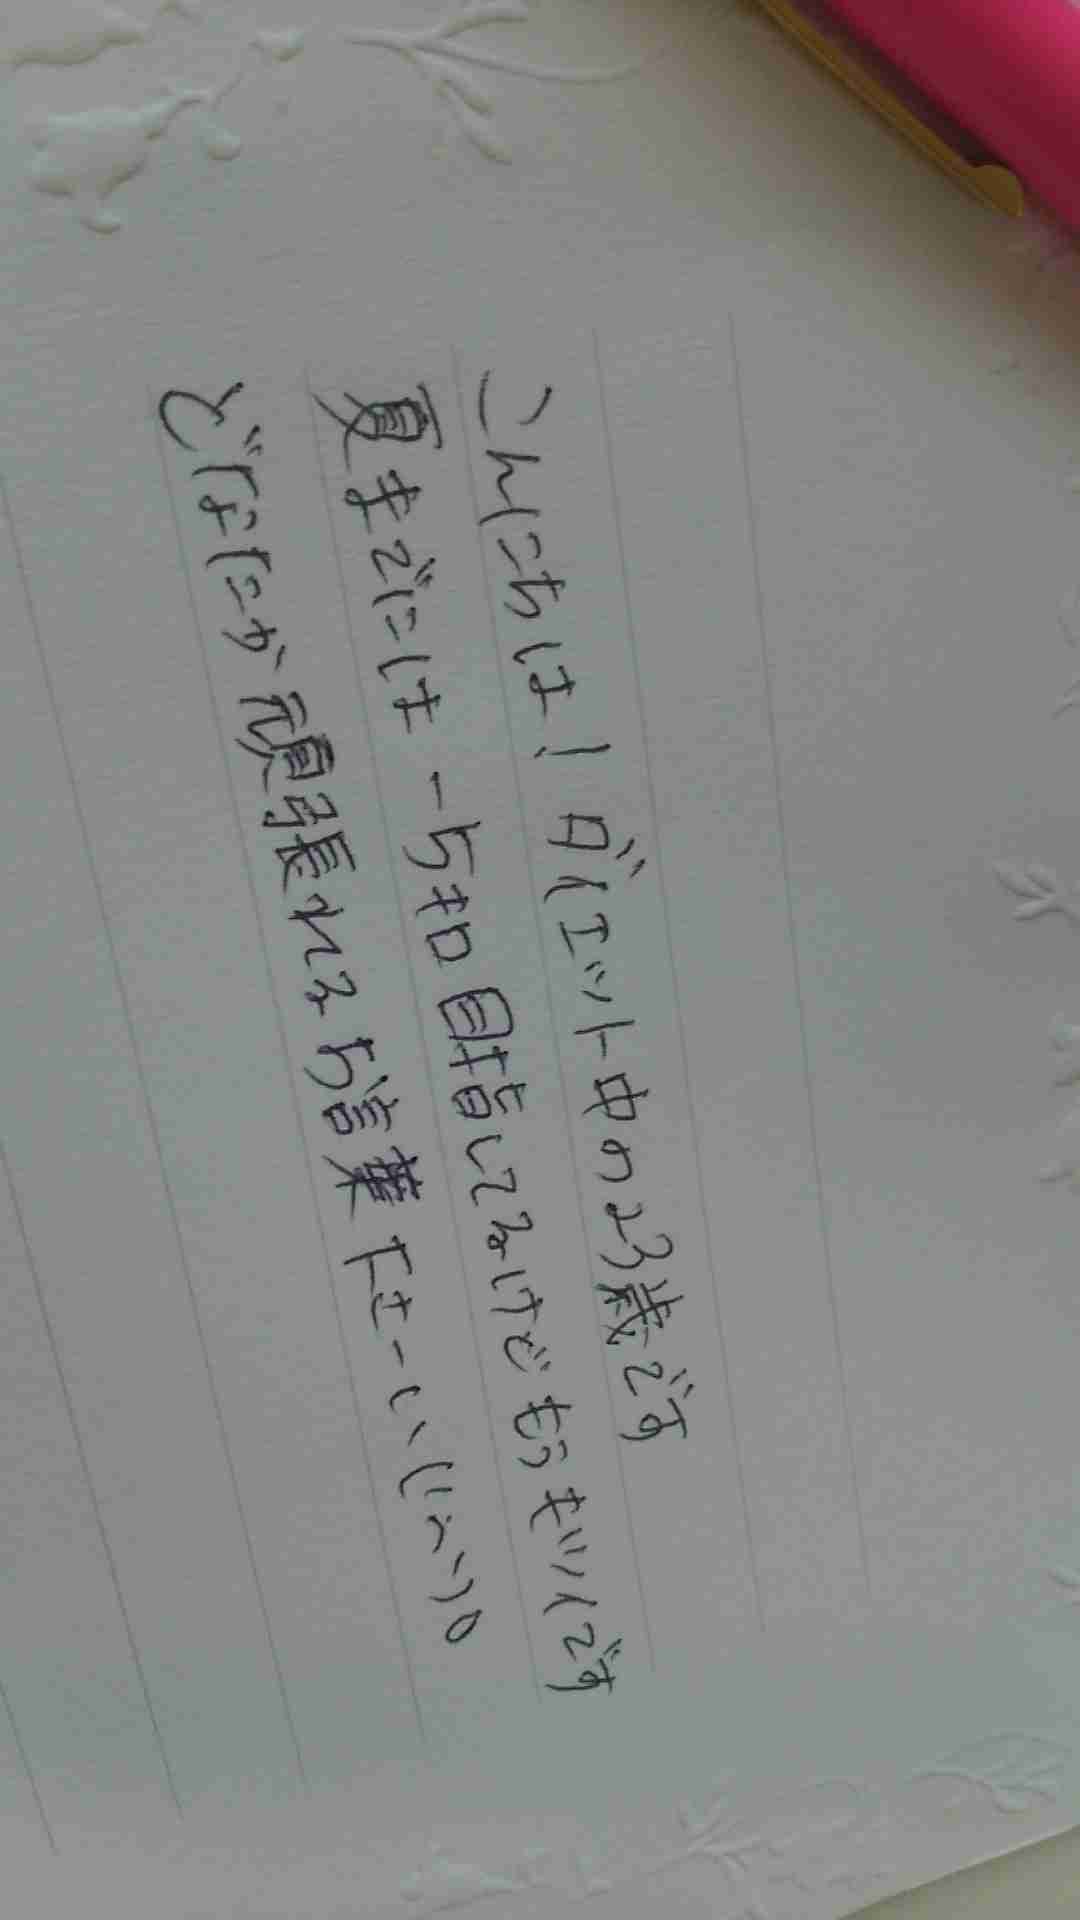 こんにちは！ダイエット中の23歳です
夏までには－5キロ目指してるけどもうキツイです
どなたか頑張れるお言葉下さーい(；へ；)。